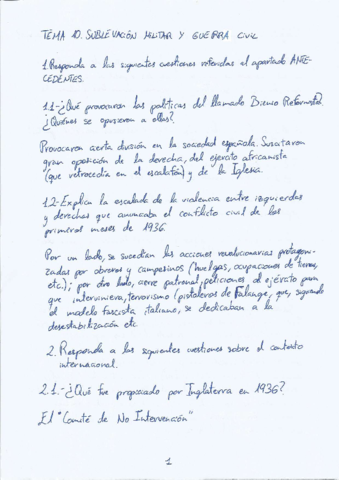 TEMA 10. SUBLEVACIÓN MILITAR Y GUERRA CIVIL
1. Responda a las siguientes cuestiones referidas al apartado ANTE-
CEDENTES.
1.1-¿Qué provocaron las políticas del llamado Bienio Reformista?
¿Quiénes se opusieron a ellas?
Provocaron cierta división en la sociedad española. Suscitaron
gran oposición de la derecha, del ejército africanista
(que retrocedía en el escalafón) y de la Iglesia.
1.2-Explica la escalada de la violencia entre izquierdas
y derechas que anunciaba el conflicto civil de los
primeros meses de 1936.
Por un lado, se sucedían las acciones revolucionarias protagon-
izadas por obreros y campesinos (huelgas, ocupaciones de tierras,
etc.); por otro lado, cierre patronal, peticiones al ejército para
que interviniera, terrorismo (pistoleros de Falange, que, siguiendo
el modelo fascista italiano, se dedicaban a la
desestabilización etc.
2. Responda a las siguientes cuestiones sobre el contexto
internacional.
2.1.-¿Qué fue propiciado por Inglaterra en 1936?
El "Comité de No Intervención"
1